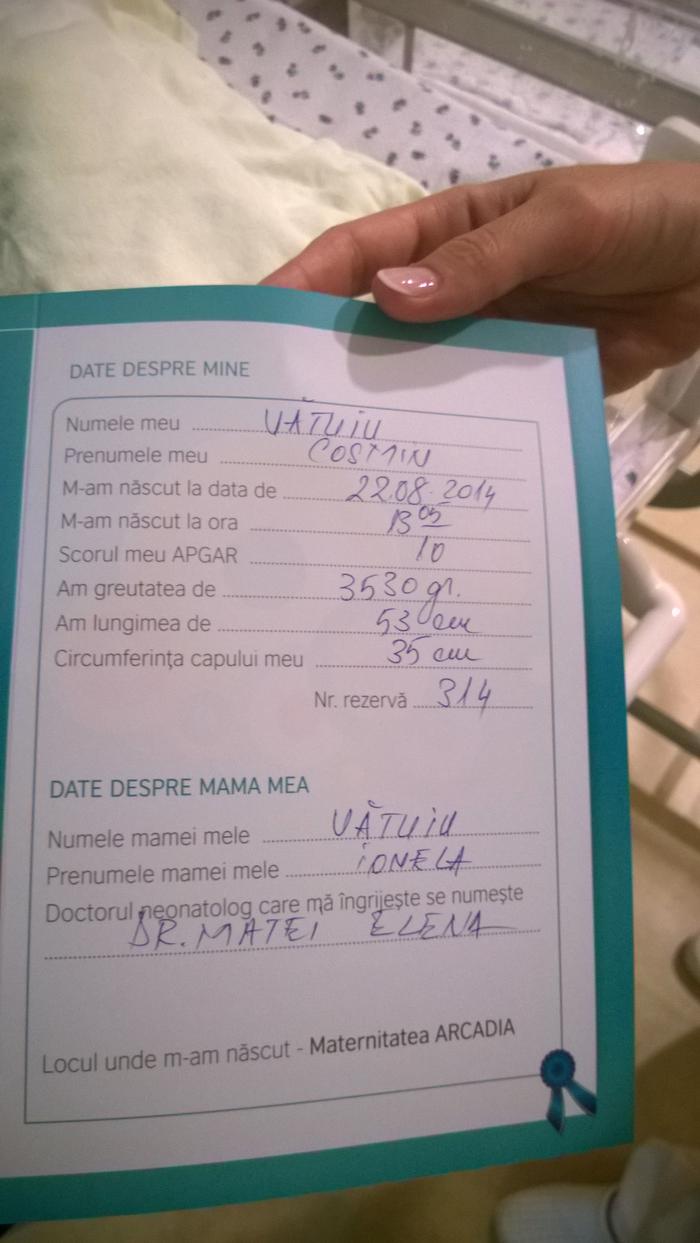 DATE DESPRE MINE
Numele meu VĂTUIU
Prenumele meu COSMIN
M-am născut la data de 22.08.2014
M-am născut la ora 13 05
Scorul meu APGAR 10
Am greutatea de 3530 gr.
Am lungimea de 53 cm
Circumferința capului meu 35 cm
Nr. rezervă 314
DATE DESPRE MAMA MEA
Numele mamei mele VĂTUIU
Prenumele mamei mele IONELA
Doctorul neonatolog care mă îngrijește se numește
DR. MATEI ELENA
Locul unde m-am născut - Maternitatea ARCADIA